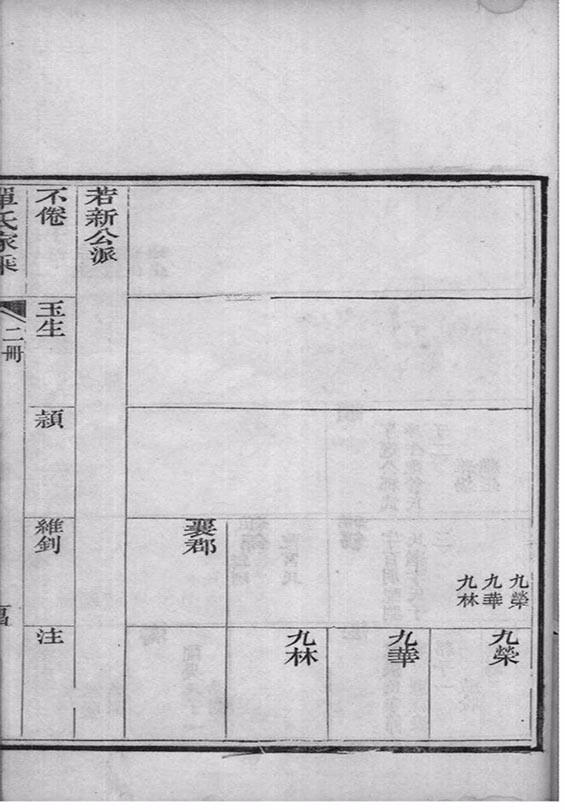 九榮
九華
九林
九榮
九華
九林
襄郡
若新公派
不倦
玉生
頴
維釗
注
單氏家乘
二冊